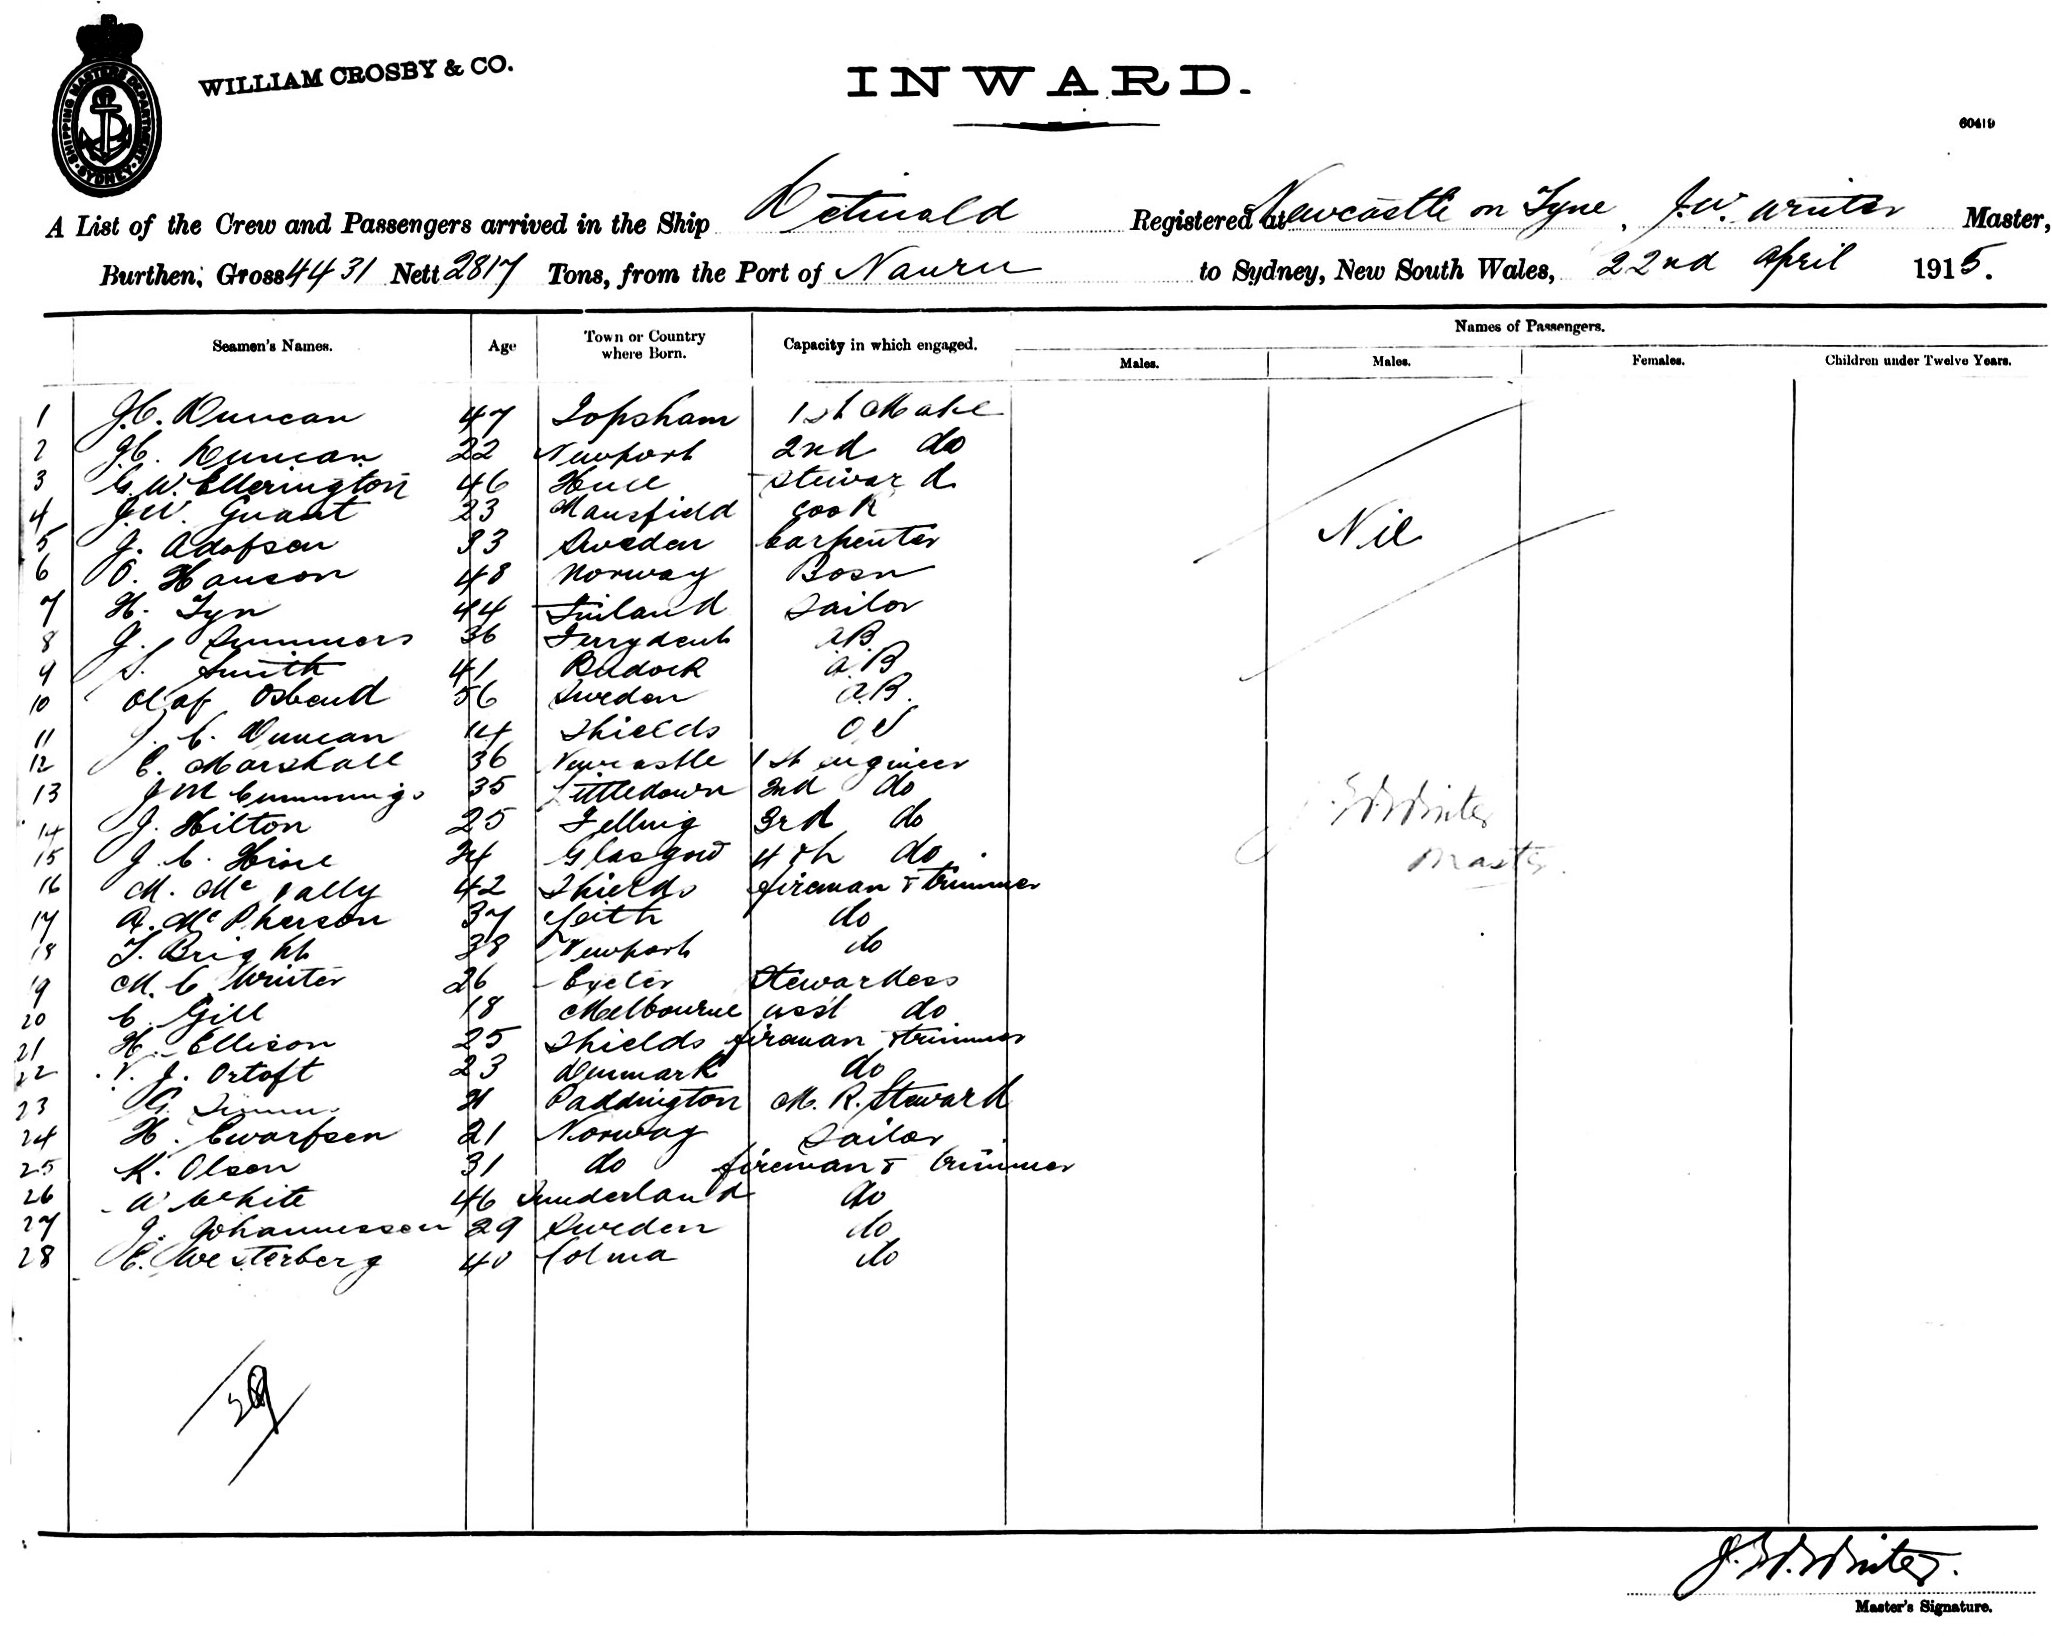 WILLIAM CROSBY & CO.
SHIPPING MASTERS DEPARTMENT SYDNEY
INWARD.
60419
A List of the Crew and Passengers arrived in the Ship Registered at Newcastle on Tyne, J.W. Winter Master,
Burthen, Gross 4431 Nett 2817 Tons, from the Port of Nauru to Sydney, New South Wales, 22nd April 1915.
Seamen's Names. Age Town or Country where Born. Capacity in which engaged. Names of Passengers.
Males. Males. Females. Children under Twelve Years.
1 J.C. Duncan 47 Topsham 1st Mate
2 J.C. Duncan 22 Newport 2nd do
3 G.W. Ellerington 46 Hull Steward
4 J.W. Grant 23 Mansfield Cook
5 J. Adofsen 33 Sweden Carpenter
Nil
6 O. Hanson 48 Norway Bosn
7 H. Tyn 44 Finland Sailor
8 J. Summers 36 Ferrydent A.B.
9 S. Smith 41 Budock A.B
10 Olaf 56 Sweden A.B.
11 J. C. Duncan 14 Shields O S
12 C. Marshall 36 Newcastle 1st engineer
13 J M Cummings 35 Littledown 2nd do
14 J. Hilton 25 Felling 3rd do
J. W. Winter
15 J. C. 24 Glasgow 4th do.
Master.
16 M. Mc Nally 42 Shields fireman & trimmer
17 A. McPherson 37 Leith do
18 T. Bright 38 Newport do
19 M. C. Winter 26 Exeter Stewardess
20 C. Gill 18 Melbourne asst do
21 H. Ellison 25 Shields fireman & trimmer
22 V. J. Ortoft 23 Denmark do
23 G. Paddington M. R. Steward
24 H. 21 Norway Sailor
25 K. Olsen 31 do fireman & trimmer
26 W White 46 Sunderland do
27 J. Johannessen 29 Sweden do
28 E. Westerberg 40 do
J. W. Winter.
Master's Signature.